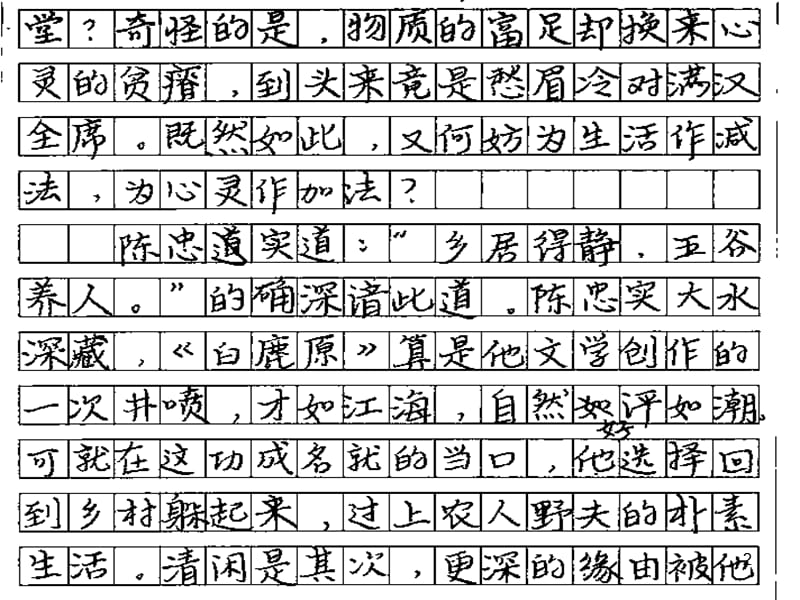 堂？奇怪的是，物质的富足却换来心
灵的贫瘠，到头来竟是愁眉冷对满汉
全席。既然如此，又何妨为生活作减
法，为心灵作加法？
陈忠道实道：“乡居得静，五谷
养人。”的确深谙此道。陈忠实大水
深藏，《白鹿原》算是他文学创作的
一次井喷，才如江海，自然好评如潮。
可就在这功成名就的当口，他选择回
到乡村躲起来，过上农人野夫的朴素
生活。清闲是其次，更深的缘由被他